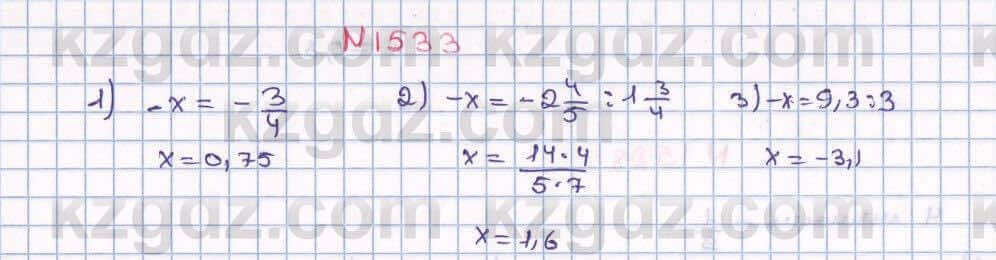 N 1533
1) -x = - 3/4
x = 0,75
2) -x = -2 4/5 : 1 3/4
x = 14·4/5·7
x = 1,6
3) -x = 9,3 : 3
x = -3,1
kzgdz.com kzgdz.com
kzgdz.com
kzgdz.com kzgdz.com